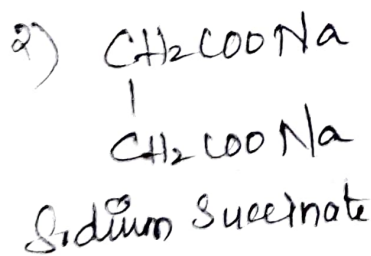 2) CH2COONa
|
CH2COONa
Sodium Succinate